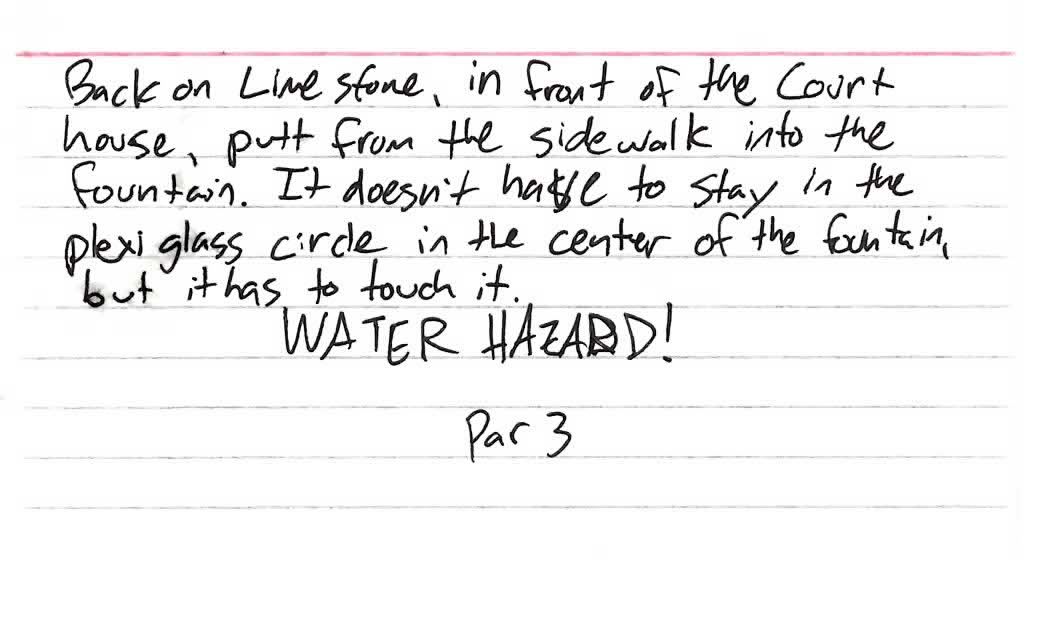 Back on Limestone, in front of the Court
house, putt from the sidewalk into the
fountain. It doesn't have to stay in the
plexiglass circle in the center of the fountain,
but it has to touch it.
WATER HAZARD!
Par 3